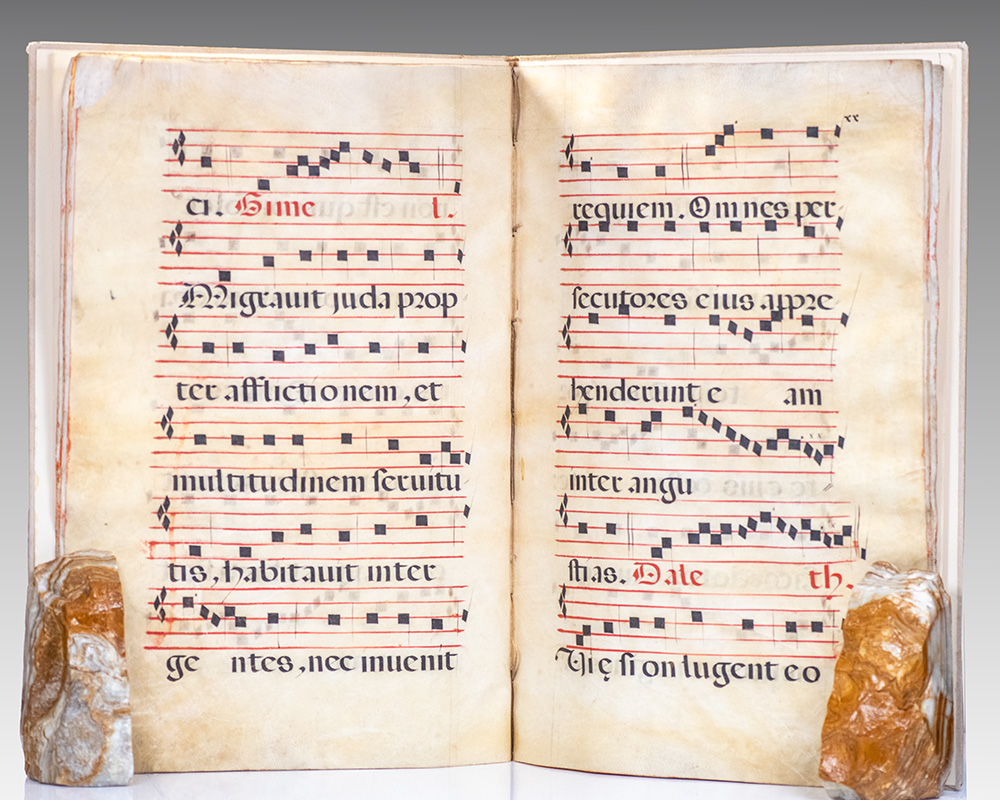 ci. Gime l.
Migrauit juda prop
ter afflictionem, et
multitudinem seruitu
tis, habitauit inter
ge ntes, nec inuenit
requiem. Omnes per
secutores eius appre
henderunt e am
inter angu
stias. Dale th.
Vię sion lugent eo